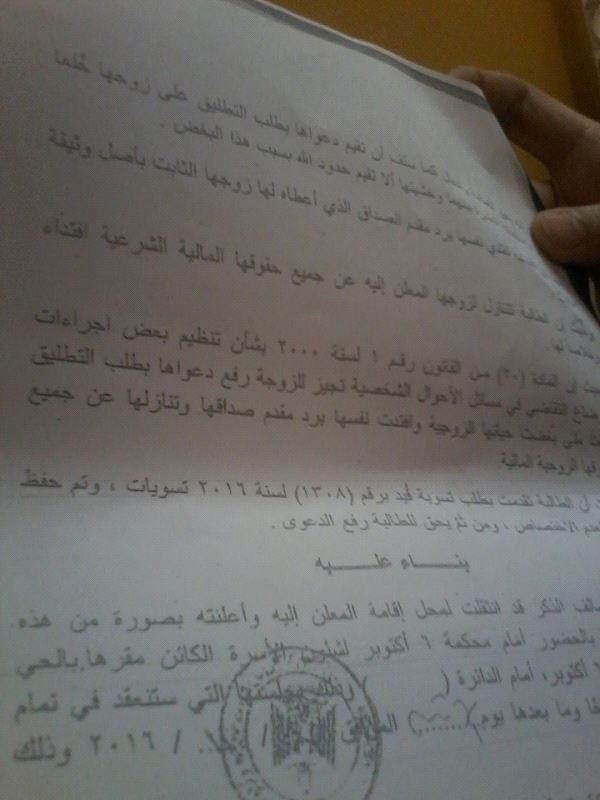 كما سلف أن تقيم دعواها بطلب التطليق على زوجها خلعا
وخشيتها ألا تقيم حدود الله بسبب هذا البغض .
تفتدي نفسها برد مقدم الصداق الذي أعطاه لها زوجها الثابت بأصل وثيقة
الطالبة تتنازل لزوجها المعلن إليه عن جميع حقوقها المالية الشرعية افتداء
وخلاصا لها .
حيث ان المادة (٢٠) من القانون رقم ١ لسنة ٢٠٠٠ بشأن تنظيم بعض اجراءات
التقاضي في مسائل الأحوال الشخصية تجيز للزوجة رفع دعواها بطلب التطليق
متى بغضت حياتها الزوجية وافتدت نفسها برد مقدم صداقها وتنازلها عن جميع
الزوجية المالية
أن الطالبة تقدمت بطلب تسوية قيد برقم (١٣٠٨) لسنة ٢٠١٦ تسويات ، وتم حفظ
لعدم الاختصاص ، ومن ثم يحق للطالبة رفع الدعوى .
بنـــاء عليـــه
سالف الذكر قد انتقلت لمحل إقامة المعلن إليه وأعلنته بصورة من هذه
بالحضور أمام محكمة ٦ أكتوبر لشئون الأسرة الكائن مقرها بالحي
٦ أكتوبر، أمام الدائرة ( ) وذلك بجلستها التي ستنعقد في تمام
وما بعدها يوم (.......) / ٢٠١٦ وذلك